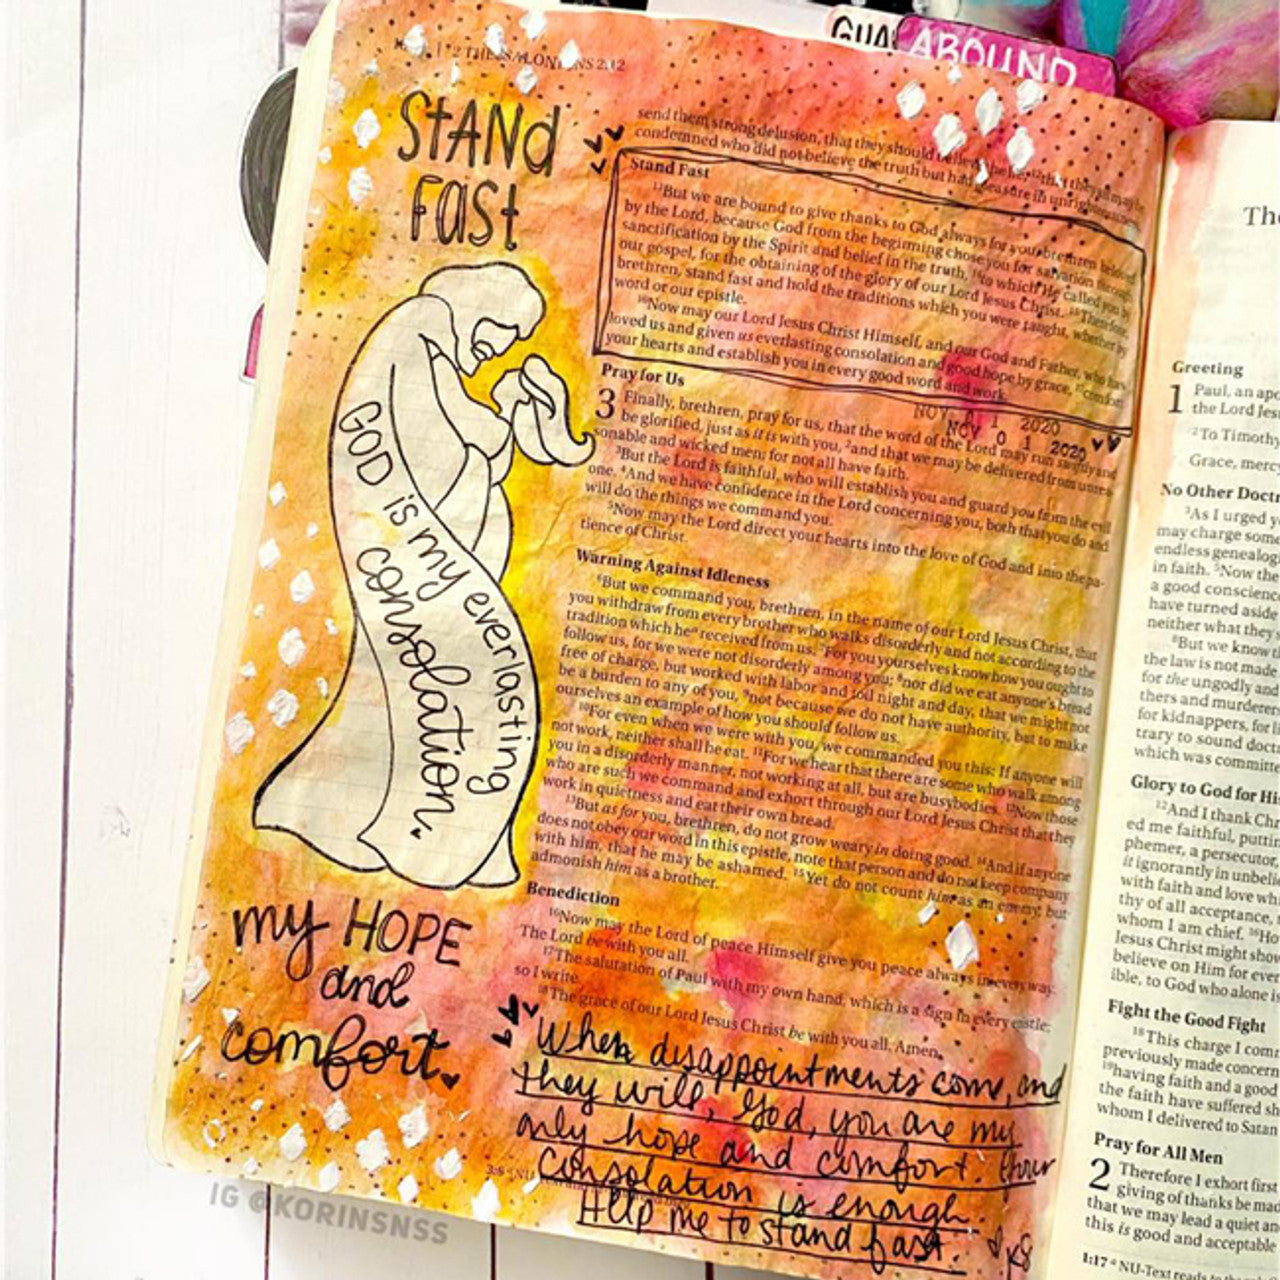 GUA
ABOUND
2 THESSALONIANS 2:12
STAND
FAST
GOD is my everlasting
consolation.
my HOPE
and
comfort.
send them strong delusion, that they should believe the lie, ¹²that they all may be
condemned who did not believe the truth but had pleasure in unrighteousness.
Stand Fast
¹³But we are bound to give thanks to God always for you, brethren beloved
by the Lord, because God from the beginning chose you for salvation through
sanctification by the Spirit and belief in the truth, ¹⁴to which He called you by
our gospel, for the obtaining of the glory of our Lord Jesus Christ. ¹⁵Therefore,
brethren, stand fast and hold the traditions which you were taught, whether by
word or our epistle.
¹⁶Now may our Lord Jesus Christ Himself, and our God and Father, who has
loved us and given us everlasting consolation and good hope by grace, ¹⁷comfort
your hearts and establish you in every good word and work.
NOV 0 1 2020
NOV 0 1 2020
Pray for Us
3 Finally, brethren, pray for us, that the word of the Lord may run swiftly and
be glorified, just as it is with you, ²and that we may be delivered from unrea-
sonable and wicked men; for not all have faith.
³But the Lord is faithful, who will establish you and guard you from the evil
one. ⁴And we have confidence in the Lord concerning you, both that you do and
will do the things we command you.
⁵Now may the Lord direct your hearts into the love of God and into the pa-
tience of Christ.
Warning Against Idleness
⁶But we command you, brethren, in the name of our Lord Jesus Christ, that
you withdraw from every brother who walks disorderly and not according to the
tradition which he received from us. ⁷For you yourselves know how you ought to
follow us, for we were not disorderly among you; ⁸nor did we eat anyone's bread
free of charge, but worked with labor and toil night and day, that we might not
be a burden to any of you, ⁹not because we do not have authority, but to make
ourselves an example of how you should follow us.
¹⁰For even when we were with you, we commanded you this: If anyone will
not work, neither shall he eat. ¹¹For we hear that there are some who walk among
you in a disorderly manner, not working at all, but are busybodies. ¹²Now those
who are such we command and exhort through our Lord Jesus Christ that they
work in quietness and eat their own bread.
¹³But as for you, brethren, do not grow weary in doing good. ¹⁴And if anyone
does not obey our word in this epistle, note that person and do not keep company
with him, that he may be ashamed. ¹⁵Yet do not count him as an enemy, but
admonish him as a brother.
Benediction
¹⁶Now may the Lord of peace Himself give you peace always in every way.
The Lord be with you all.
¹⁷The salutation of Paul with my own hand, which is a sign in every epistle;
so I write.
¹⁸The grace of our Lord Jesus Christ be with you all. Amen.
When disappointments come, and
they will, God, you are my
only hope and comfort. Your
consolation is enough.
Help me to stand fast. KS
3:6 NU
IG @KORINSNSS
The
Greeting
1 Paul, an apo
the Lord Jes
²To Timothy
Grace, mercy
No Other Doctr
³As I urged y
may charge some
endless genealog
in faith. ⁵Now the
a good conscience
have turned aside
neither what they
⁸But we know t
the law is not made
for the ungodly and
thers and murderer
for kidnappers, for l
trary to sound doct
which was committe
Glory to God for Hi
¹²And I thank Chr
ed me faithful, puttin
phemer, a persecutor,
it ignorantly in unbeli
with faith and love wh
thy of all acceptance,
whom I am chief. ¹⁶Ho
Jesus Christ might show
believe on Him for ever
ible, to God who alone i
Fight the Good Fight
¹⁸This charge I com
previously made concern
¹⁹having faith and a good
the faith have suffered sh
whom I delivered to Satan
Pray for All Men
2 Therefore I exhort first
giving of thanks be ma
that we may lead a quiet an
this is good and acceptable
1:17 NU-Text reads to the